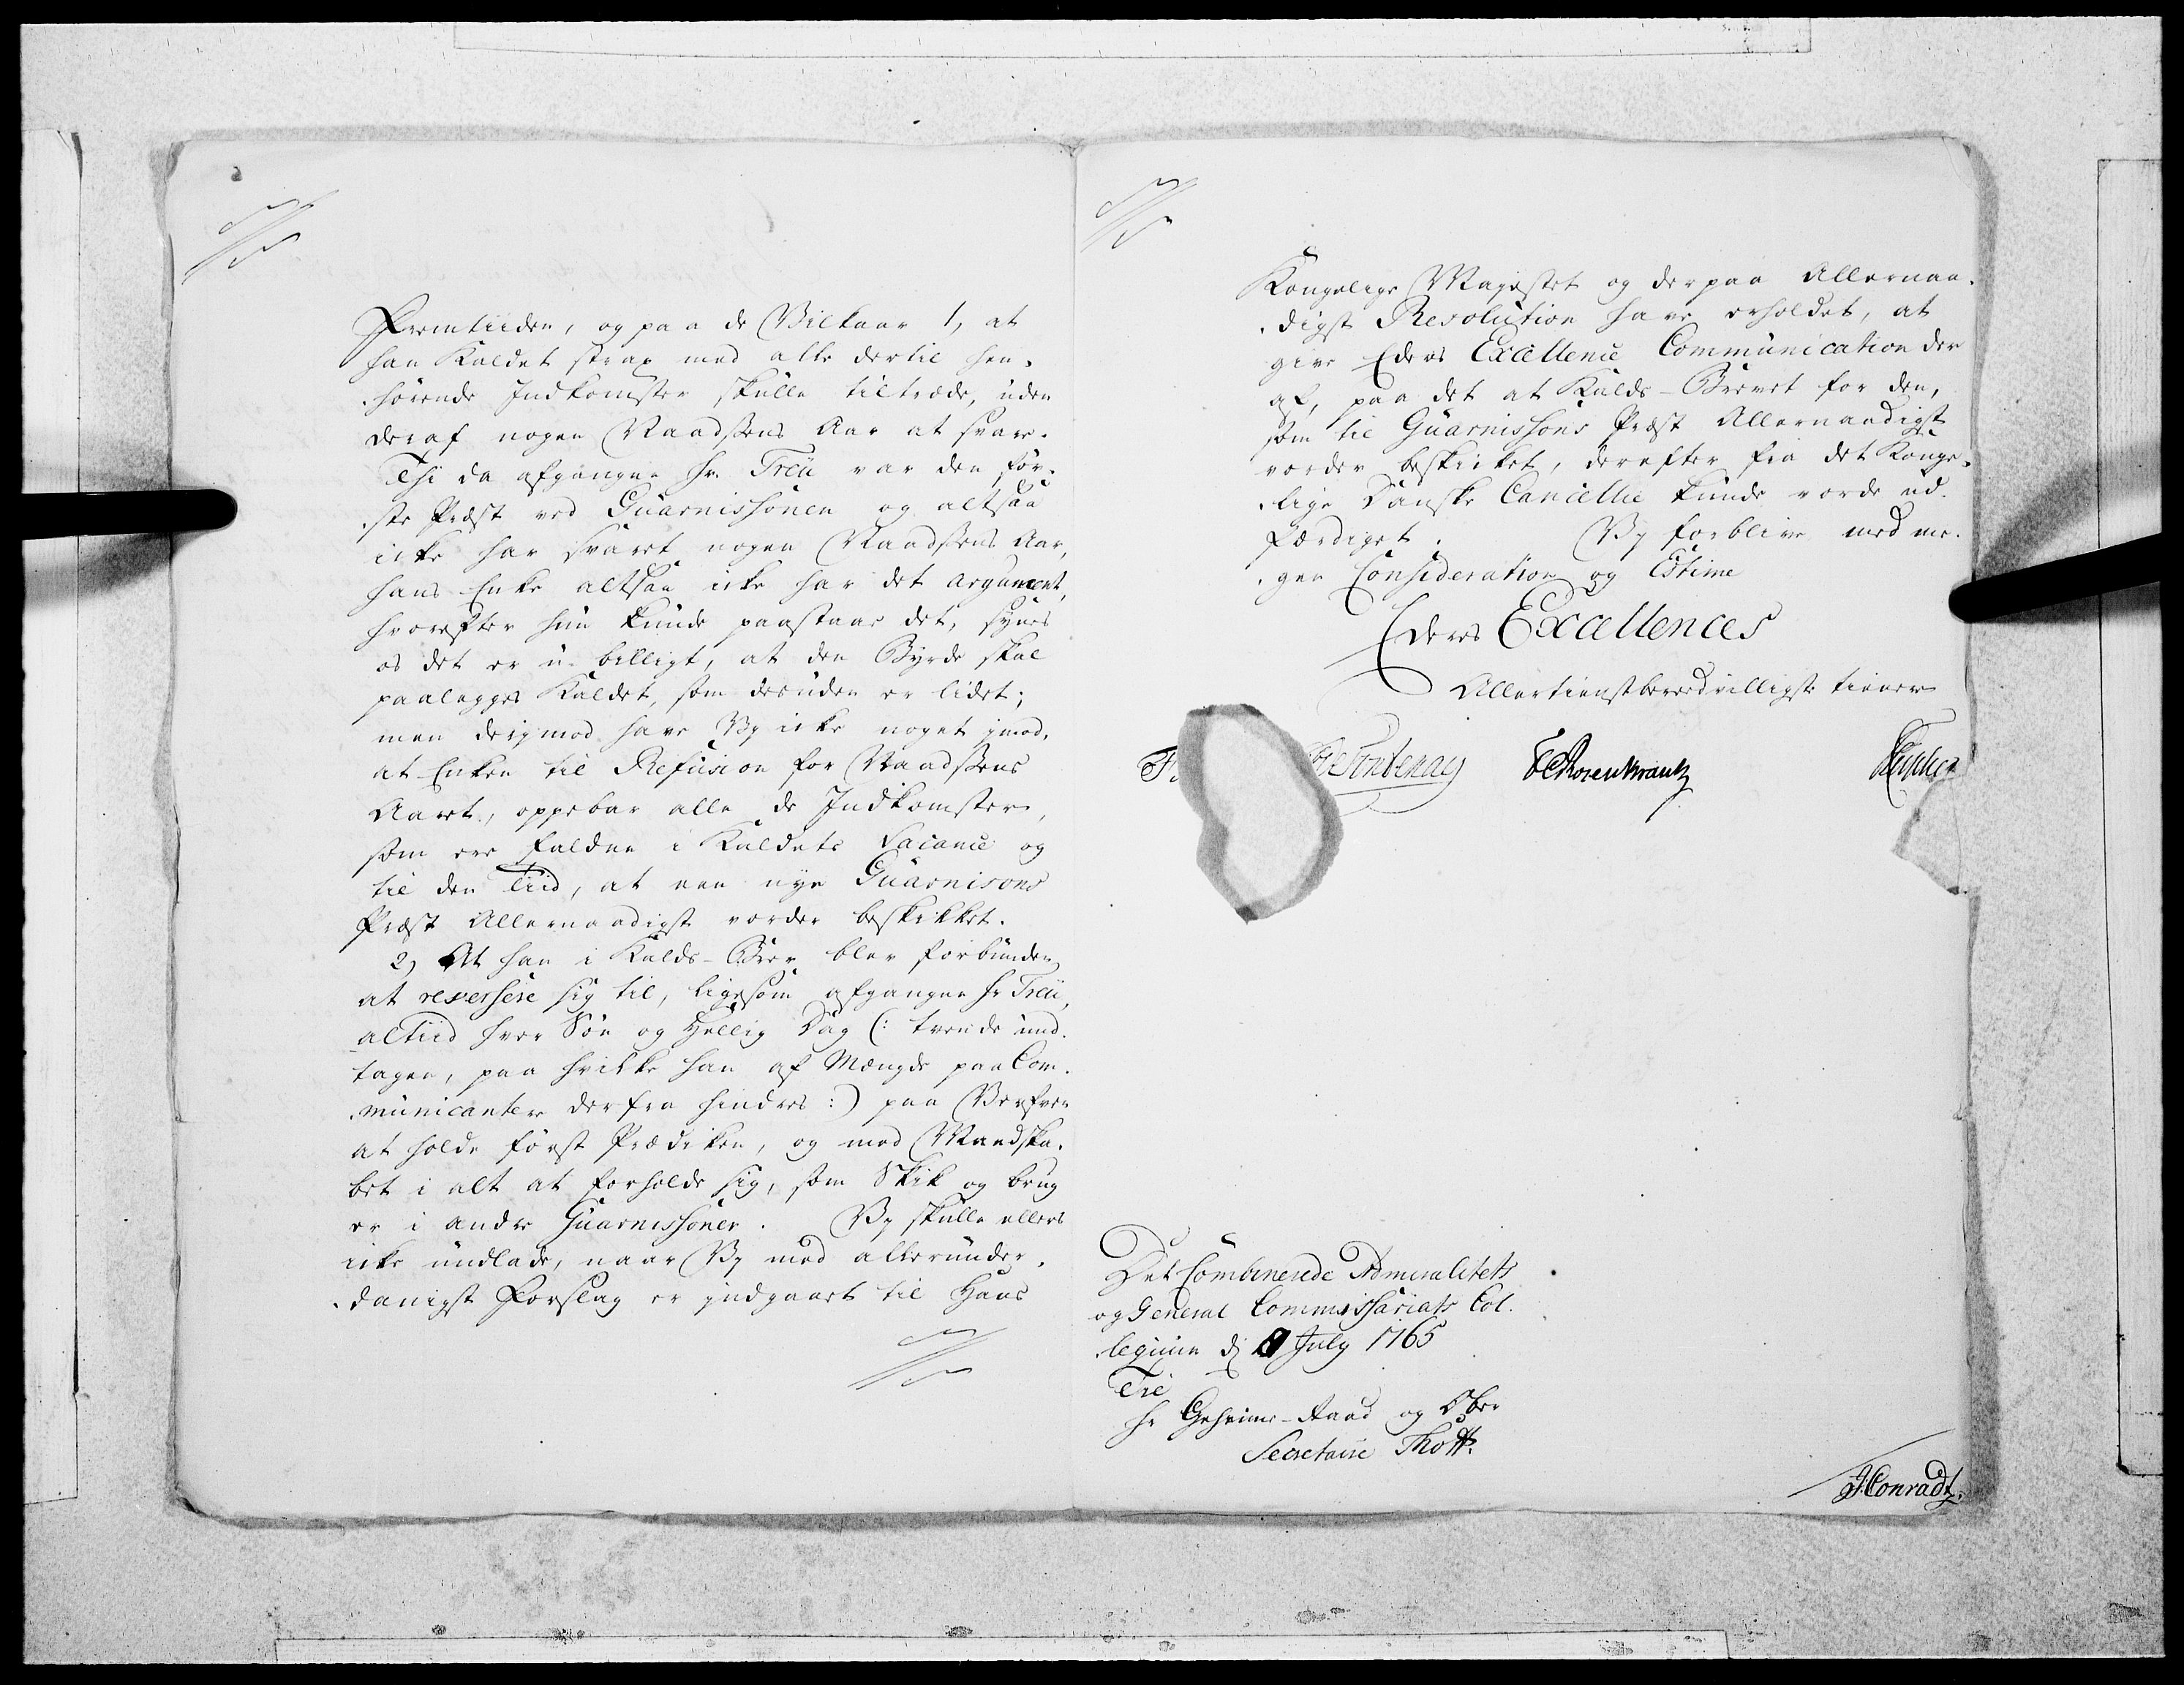 Fremtiiden, og paa de Vilkaar 1, at
han Kaldet strax med alle dertil hen-
hørende Indkomster skulle tiltræde, uden
deraf nogen Naadsens Aar at svare.
Thi da afgangne Hr. Treu var den før-
ste Præst ved Guarnissonen og altsaa
icke har svaret nogen Naadsens Aar,
hans Enke altsaa icke har det argument,
hvorefter hun kunde paastaae det, synes
os det er u-billigt, at den Byrde skal
paalegges Kaldet, som desuden er lidet;
men derimod have Vy icke noget imod,
at Enken til Refusion for Naadsens
Aaret, oppebær alle de Indkomster,
som ere falden i Kaldets Vacance og
til den Tiid, at een nye Guarnisons
Præst Allernaadigst vorder beskikket.
2) At han i Kalds-Brev blev forbunden
at reversere sig til, ligesom afgangne Hr Treu,
altiid hver Søn og Hellig Dag (: trende und-
tagen, paa hvilke han af Mængde paa Com-
municantere derfra hindres :) paa Verfven
at holde først Prædiken, og med Mandska-
bet i alt at forholde sig, som Skik og brug
er i andre Guarnissoner. Vy skulle ellers
icke undlade, naar Vy med allerunder-
danigst Forslag er indgaaet til Hans
Kongelige Majestet og derpaa Allernaa-
digst Resolution have erholdet, at
give Eders Excellence Communication der
af, paa det at Kalds-Brevet for den,
som til Guarnissons Præst Allernaadigst
vorder beskicket, derefter fra det Konge-
lige Danske Cancellie kunde vorde ud-
færdiget. Vy forblive med me-
gen Consideration og Estime
Eders Excellences
Allertienstberedvilligste tienere
De Fontenay Rosenkrantz
Det Combinerede Admiralitets
og General Commissariats Col-
legium d July 1765
Til
Hr Geheime-Raad og Ober
Secretaire Thott.
J Conradt.